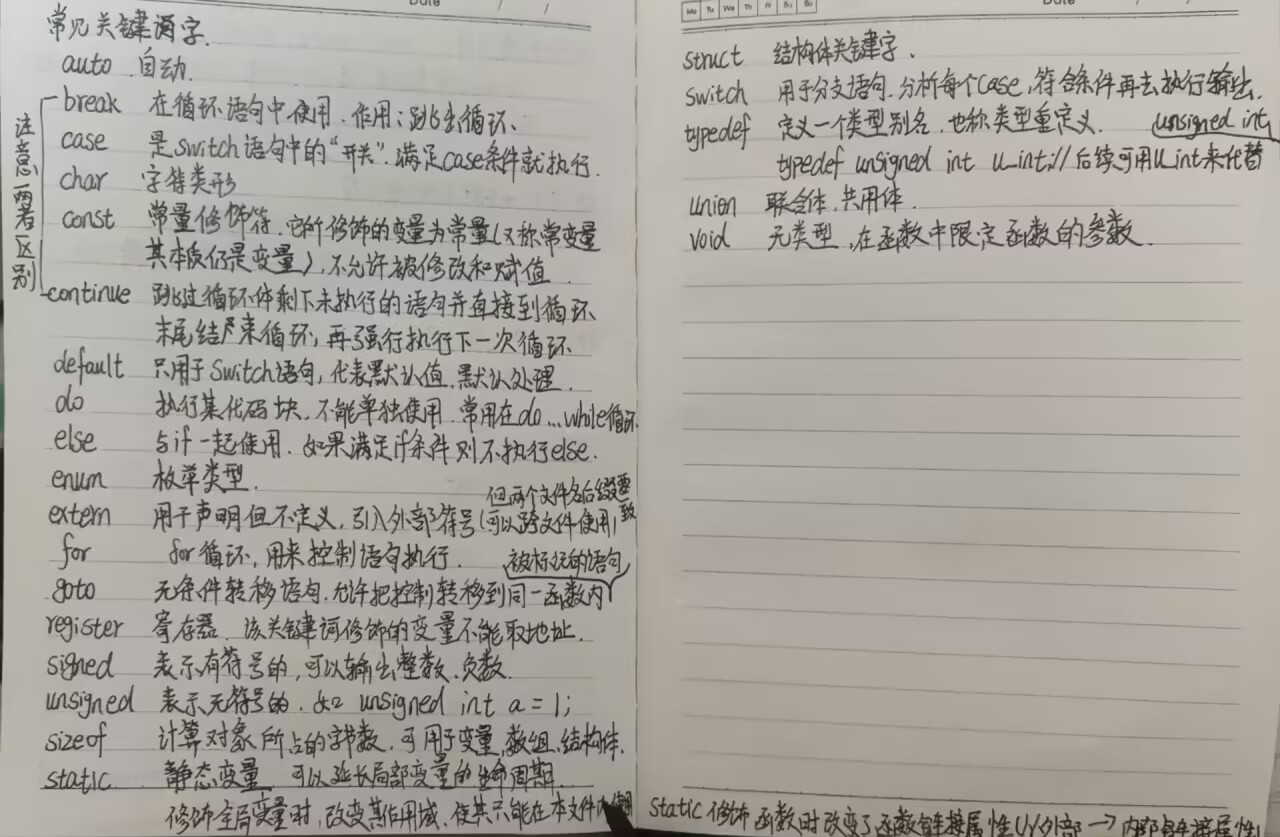 Date / /
常见关键词字.
auto 自动.
break 在循环语句中使用.作用:跳出循环.
注意两者区别
case 是switch语句中的"开关".满足case条件就执行.
char 字符类形
const 常量修饰符.它所修饰的变量为常量(又称常变量
其本质仍是变量),不允许被修改和赋值.
continue 跳过循环体剩下未执行的语句并直接到循环
末尾结束循环,再强行执行下一次循环
default 只用于Switch语句,代表默认值.默认处理.
do 执行某代码块.不能单独使用.常用在do...while循环.
else 与if一起使用.如果满足if条件则不执行else.
enum 枚举类型.
但两个文件名后缀要
extern 用于声明但不定义,引入外部符号(可以跨文件使用)致
for for循环,用来控制语句执行.
被标记的语句
goto 无条件转移语句.允许把控制转移到同一函数内
register 寄存器.该关键词修饰的变量不能取地址.
signed 表示有符号的,可以输出整数.负数.
unsigned 表示无符号的.如 unsigned int a = 1;
sizeof 计算对象所占的字节数.可用于变量.数组.结构体.
static 静态变量 可以延长局部变量的生命周期.
修饰全局变量时,改变其作用域.使其只能在本文件
Mo Tu We Th Fr Sa Su
Date / /
struct 结构体关键字.
switch 用于分支语句.分析每个case,符合条件再去执行输出.
typedef 定义一个类型别名.也称类型重定义. unsigned int
typedef unsigned int u_int;//后续可用u_int来代替
union 联合体.共用体.
void 无类型,在函数中限定函数的参数.
static修饰函数时改变了函数链接属性 外部→内部链接属性